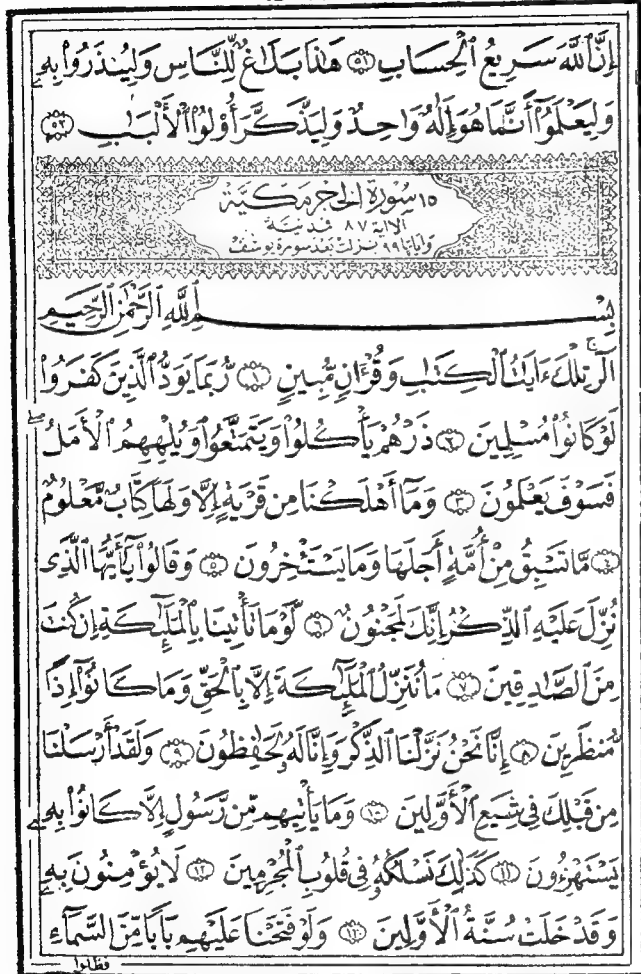 إِنَّ ٱللَّهَ سَرِيعُ ٱلْحِسَابِ ۝٥١ هَٰذَا بَلَٰغٌ لِّلنَّاسِ وَلِيُنذَرُوا۟ بِهِۦ
وَلِيَعْلَمُوٓا۟ أَنَّمَا هُوَ إِلَٰهٌ وَٰحِدٌ وَلِيَذَّكَّرَ أُو۟لُوا۟ ٱلْأَلْبَٰبِ ۝٥٢
١٥ سورة الحجر مكية
الا اية ٨٧ فمدنية
واياتها ٩٩ نزلت بعد سورة يوسف
بِسْمِ ٱللَّهِ ٱلرَّحْمَٰنِ ٱلرَّحِيمِ
الٓرۚ تِلْكَ ءَايَٰتُ ٱلْكِتَٰبِ وَقُرْءَانٍ مُّبِينٍ ۝١ رُّبَمَا يَوَدُّ ٱلَّذِينَ كَفَرُوا۟
لَوْ كَانُوا۟ مُسْلِمِينَ ۝٢ ذَرْهُمْ يَأْكُلُوا۟ وَيَتَمَتَّعُوا۟ وَيُلْهِهِمُ ٱلْأَمَلُ
فَسَوْفَ يَعْلَمُونَ ۝٣ وَمَآ أَهْلَكْنَا مِن قَرْيَةٍ إِلَّا وَلَهَا كِتَابٌ مَّعْلُومٌ
۝٤ مَّا تَسْبِقُ مِنْ أُمَّةٍ أَجَلَهَا وَمَا يَسْتَـْٔخِرُونَ ۝٥ وَقَالُوا۟ يَٰٓأَيُّهَا ٱلَّذِى
نُزِّلَ عَلَيْهِ ٱلذِّكْرُ إِنَّكَ لَمَجْنُونٌ ۝٦ لَّوْ مَا تَأْتِينَا بِٱلْمَلَٰٓئِكَةِ إِن كُنتَ
مِنَ ٱلصَّٰدِقِينَ ۝٧ مَا نُنَزِّلُ ٱلْمَلَٰٓئِكَةَ إِلَّا بِٱلْحَقِّ وَمَا كَانُوٓا۟ إِذًا
مُّنظَرِينَ ۝٨ إِنَّا نَحْنُ نَزَّلْنَا ٱلذِّكْرَ وَإِنَّا لَهُۥ لَحَٰفِظُونَ ۝٩ وَلَقَدْ أَرْسَلْنَا
مِن قَبْلِكَ فِى شِيَعِ ٱلْأَوَّلِينَ ۝١٠ وَمَا يَأْتِيهِم مِّن رَّسُولٍ إِلَّا كَانُوا۟ بِهِۦ
يَسْتَهْزِءُونَ ۝١١ كَذَٰلِكَ نَسْلُكُهُۥ فِى قُلُوبِ ٱلْمُجْرِمِينَ ۝١٢ لَا يُؤْمِنُونَ بِهِۦ
وَقَدْ خَلَتْ سُنَّةُ ٱلْأَوَّلِينَ ۝١٣ وَلَوْ فَتَحْنَا عَلَيْهِم بَابًا مِّنَ ٱلسَّمَآءِ
فظلوا